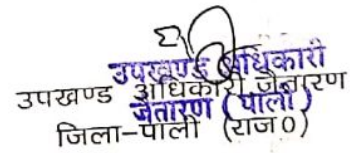 उपखण्ड अधिकारी
उपखण्ड अधिकारी जैतारण
जैतारण (पाली)
जिला-पाली (राज0)